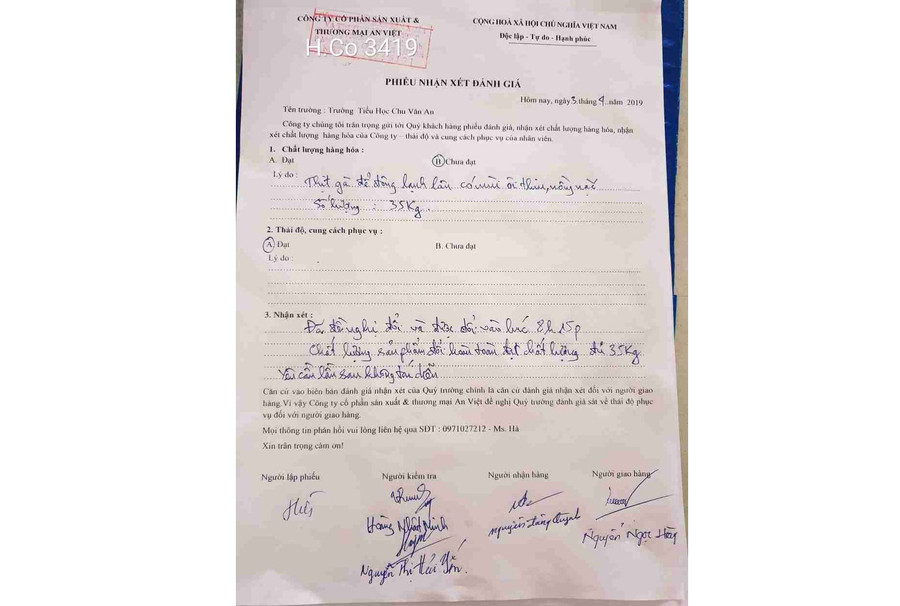 CÔNG TY CỔ PHẦN SẢN XUẤT &
THƯƠNG MẠI AN VIỆT
H.Co 3419
CỘNG HOÀ XÃ HỘI CHỦ NGHĨA VIỆT NAM
Độc lập - Tự do - Hạnh phúc
PHIẾU NHẬN XÉT ĐÁNH GIÁ
Hôm nay, ngày 3 tháng 4 năm 2019
Tên trường : Trường Tiểu Học Chu Văn An
Công ty chúng tôi trân trọng gửi tới Quý khách hàng phiếu đánh giá, nhận xét chất lượng hàng hóa, nhận
xét chất lượng hàng hóa của Công ty – thái độ và cung cách phục vụ của nhân viên.
1. Chất lượng hàng hóa :
A. Đạt
B. Chưa đạt
Lý do :
Thịt gà để đông lạnh lâu có mùi ôi thiu, nồng nặc
Số lượng : 35Kg.
2. Thái độ, cung cách phục vụ :
A. Đạt
B. Chưa đạt
Lý do :
3. Nhận xét :
Đã đề nghị đổi và được đổi vào lúc 8h15p
Chất lượng sản phẩm đổi hoàn toàn đạt chất lượng đủ 35Kg
Yêu cầu lần sau không tái diễn
Căn cứ vào biên bản đánh giá nhận xét của Quý trường chính là căn cứ đánh giá nhận xét đối với người giao
hàng.Vì vậy Công ty cổ phần sản xuất & thương mại An Việt đề nghị Quý trường đánh giá sát về thái độ phục
vụ đối với người giao hàng.
Mọi thông tin phản hồi vui lòng liên hệ qua SĐT : 0971027212 - Ms. Hà
Xin trân trọng cảm ơn!
Người lập phiếu
Người kiểm tra
Người nhận hàng
Người giao hàng
Hoàng Nhật Minh
Nguyễn Thị Hải Yến.
Nguyễn Đăng Quỳnh
Nguyễn Ngọc Hồng